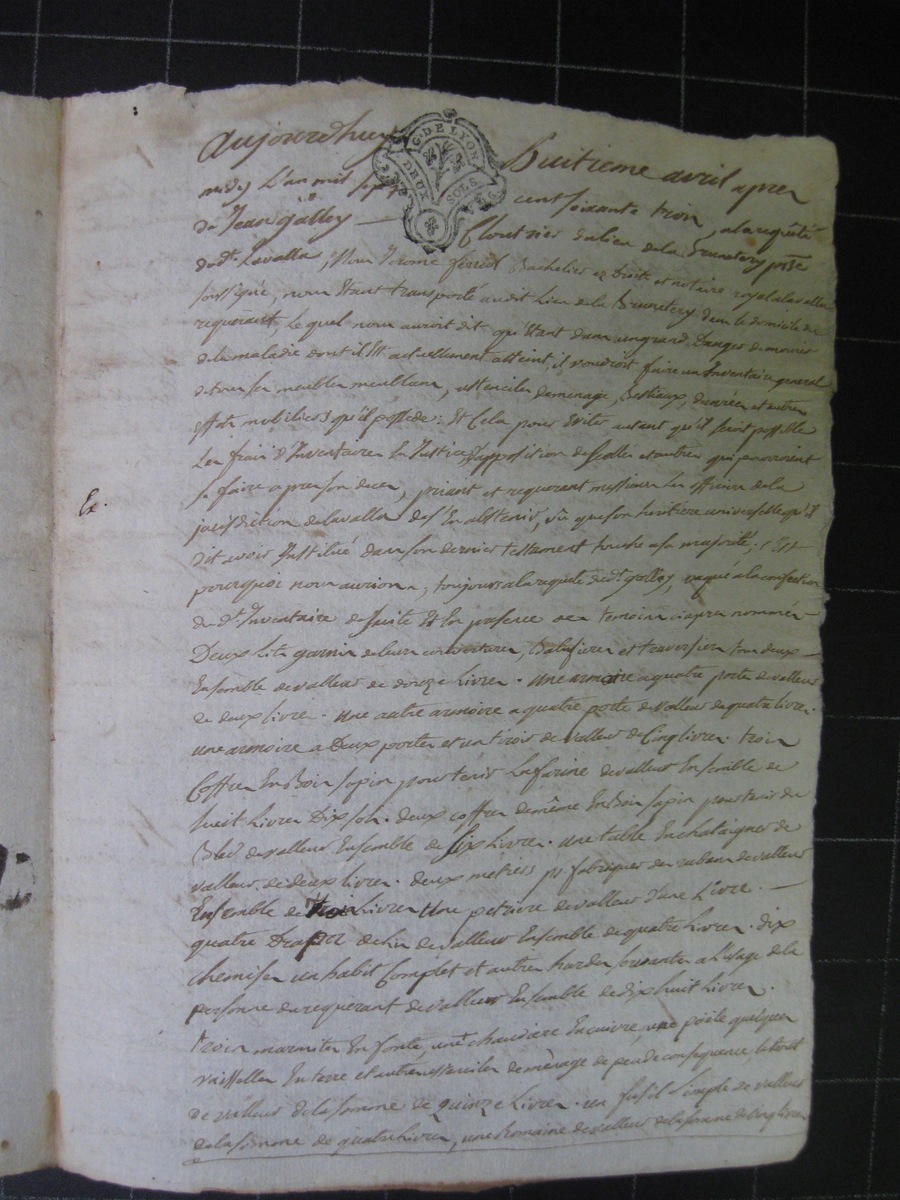 Aujourd'huy huitieme avril apres
midy L'an mil sept cent soixante trois, a la requête
G. DE LYON
DEUX SOLS
de Jean Galley — Cloutrier du lieu de la Brunetery psse
dud.t Lavalla, Nous Jerome ferriol Bachelier ez droits et notaire royal a lavalla
soussigné, nous étant transporté audit lieu de la Brunetery dans le domicile du
requerant Lequel nous auroit dit qu'étant dans un grand danger de mourir
de la maladie dont il est actuellement atteint, il voudroit faire un Inventaire general
de tous ses meubles meublans, ustenciles de menage, Bestiaux, danrées et autres
effets mobiliers qu'il possede: Et Cela pour Eviter autant qu'il seroit possible
Les frais d'Inventaire En Justice, d'apposition de scellés et autres qui pourroient
se faire apres son deces, priant et requerant messieurs les officiers de la
Ex.
jurisdiction de lavalla de s'En abstenir, vu que son heritiere universelle qu'il
dit avoir Instituée dans son dernier testament touche a sa majorité; c'Est
pourquoi nous aurions, toujours a la requête dud.t Galley, vaqué a la confection
dud.t Inventaire de suite Et En presence des temoins ciapres nommés —
Deux Lits garnis de leurs couvertures, Balassieres et traversiers tous deux —
Ensemble de valleur de douze Livres. Une armoire a quatre portes de valleur
de deux Livres. Une autre armoire a quatre porte de valleur de quatre Livres.
une armoire a Deux portes et un tiroir de valleur de Cinq livres. trois
Coffres En Bois sapin pour tenir La farine de valleur Ensemble de
huit Livres Dix sols. deux coffres de même En Bois sapin pour tenir du
Bled de valleur Ensemble de six Livres. une table En chataigner de
valleur de deux livres. deux metiers pr. fabriquer des rubans de valleur
Ensemble de trois Livres Une petriere de valleur d'une Livre. —
quatre Draps de lin de valleur Ensemble de quatre Livres. dix
chemises un habit Complet et autres hardes servantes a L'usage de la
personne du requerant de valleur Ensemble de dix huit Livres.
trois marmites En fonte, une chaudiere En cuivre, une poële quelques
vaisselles En terre et autres ustenciles de mènage de peu de consequence, le tout
de valleur de la somme de quinze Livres. un fusil simple de valleur
de la somme de quatre Livres, une Romaine de valleur de la somme de Cinq livres